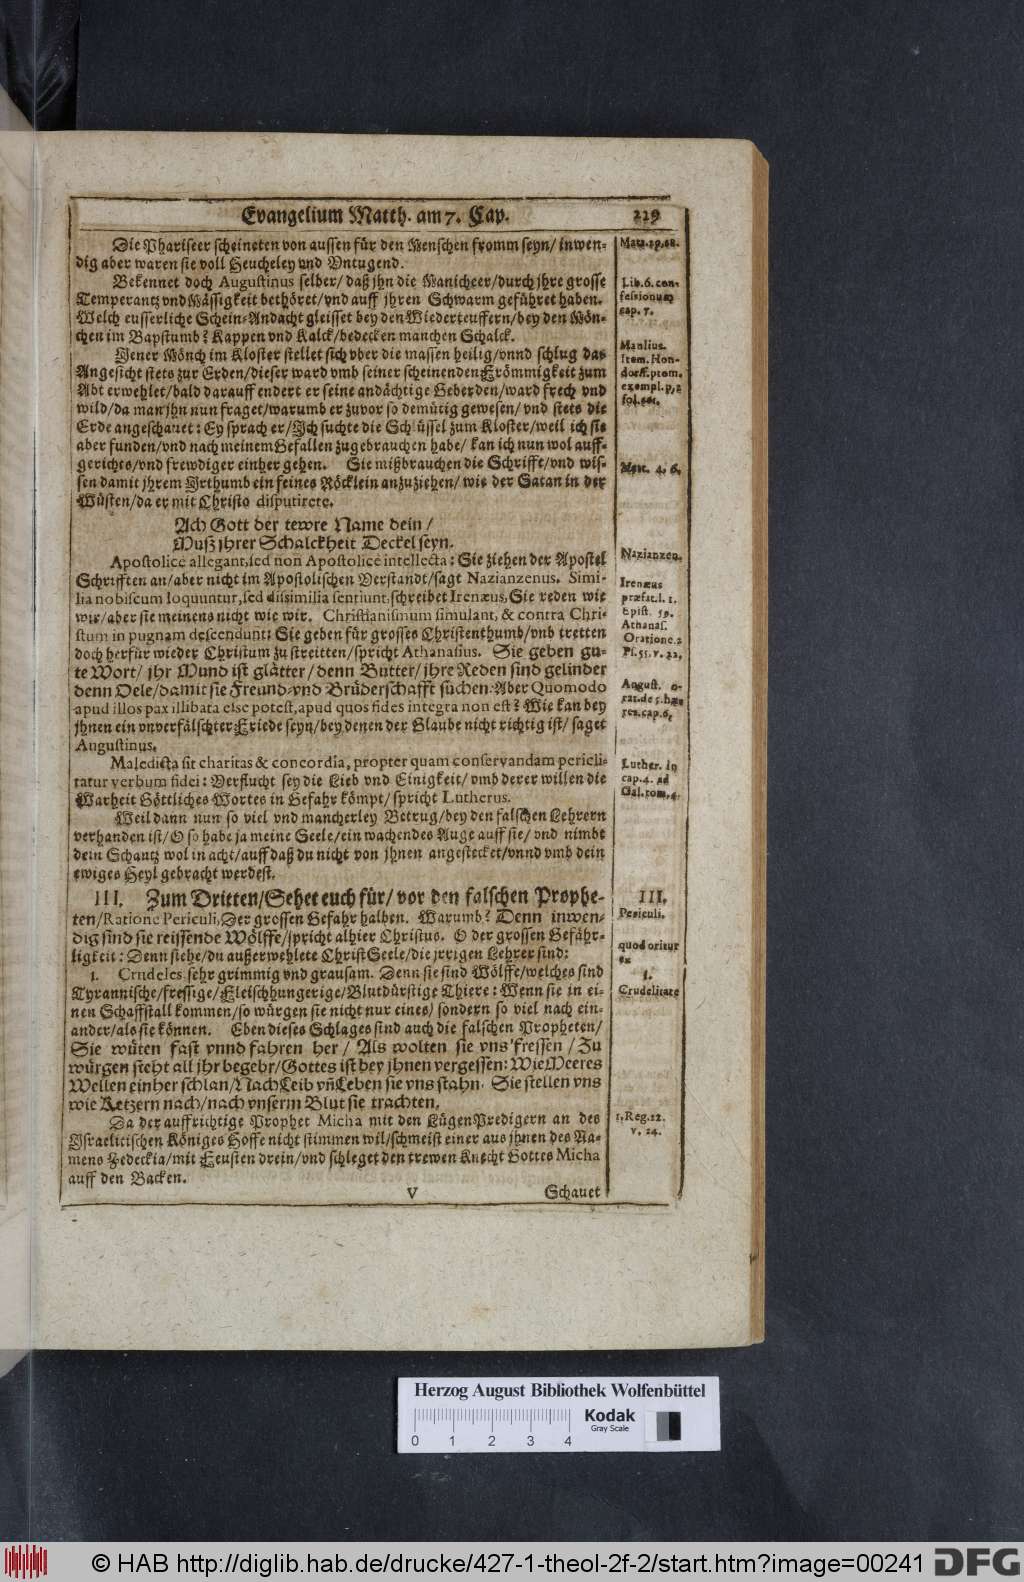 Evangelium Matth. am 7. Cap.
219
Die Phariseer scheineten von aussen für den Menschen fromm seyn/ inwen-
dig aber waren sie voll Heucheley vnd Vntugend.
Bekennet doch Augustinus selber/ daß jhn die Manicheer/durch jhre grosse
Temperantz vnd Mässigkeit bethöret/vnd auff jhren Schwarm geführet haben.
Welch eusserliche Schein-Andacht gleisset bey den Wiederteuffern/bey den Mön-
chen im Bapstumb? Kappen vnd Kalck/bedecken manchen Schalck.
Jener Mönch im Kloster stellet sich vber die massen heilig/vnnd schlug das
Angesicht stets zur Erden/dieser ward vmb seiner scheinenden Frömmigkeit zum
Abt erwehlet/bald darauff endert er seine andächtige Geberden/ward frech vnd
wild/da man jhn nun fraget/warumb er zuvor so demütig gewesen/ vnd stets die
Erde angeschauet: Ey sprach er/Jch suchte die Schlüssel zum Kloster/weil ich sie
aber funden/vnd nach meinem Gefallen zugebrauchen habe/ kan ich nun wol auff-
gerichts/vnd frewdiger einher gehen. Sie mißbrauchen die Schrifft/vnd wis-
sen damit jhrem Jrthumb ein feines Röcklein anzuziehen/ wie der Satan in der
Wüsten/da er mit Christo disputirete.
Ach Gott der tewre Name dein/
Muß jhrer Schalckheit Deckel seyn.
Apostolice allegant, sed non Apostolice intellecta: Sie ziehen der Apostel
Schrifften an/aber nicht im Apostolischen Verstandt/sagt Nazianzenus. Simi-
lia nobiscum loquuntur, sed dissimilia sentiunt, schreibet Irenæus, Sie reden wie
wir/aber sie meinens nicht wie wir. Christianismum simulant, & contra Chri-
stum in pugnam descendunt: Sie geben für grosses Christenthumb/vnd tretten
doch herfür wieder Christum zu streitten/spricht Athanasius. Sie geben gu-
te Wort/ jhr Mund ist glätter/denn Butter/jhre Reden sind gelinder
denn Oele/damit sie Freund-vnd Brüderschafft suchen: Aber Quomodo
apud illos pax illibata esse potest, apud quos fides integra non est? Wie kan bey
jhnen ein vnverfälschter Friede seyn/bey denen der Glaube nicht richtig ist/ saget
Augustinus.
Maledicta sit charitas & concordia, propter quam conservandam pericli-
tatur verbum fidei: Verflucht sey die Lieb vnd Einigkeit/ vmb derer willen die
Warheit Göttliches Wortes in Gefahr kömpt/spricht Lutherus.
Weil dann nun so viel vnd mancherley Betrug/bey den falschen Lehrern
verhanden ist/O so habe ja meine Seele/ein wachendes Auge auff sie/ vnd nimbt
dein Schantz wol in acht/auff daß du nicht von jhnen angestecket/vnnd vmb dein
ewiges Heyl gebracht werdest.
III. Zum Dritten/Sehet euch für/ vor den falschen Prophe-
ten/Ratione Periculi, Der grossen Gefahr halben. Warumb? Denn inwen-
dig sind sie reissende Wölffe/spricht alhier Christus. O der grossen Gefähr-
ligkeit: Denn siehe/du außerwehlete Christ Seele/die jrrigen Lehrer sind:
1. Crudeles, sehr grimmig vnd grausam. Denn sie sind Wölffe/welches sind
Tyrannische/fressige/Fleischhungerige/Blutdürstige Thiere: Wenn sie in ei-
nen Schaffstall kommen/so würgen sie nicht nur eines/ sondern so viel nach ein-
ander/als sie können. Eben dieses Schlages sind auch die falschen Propheten/
Sie wüten fast vnnd fahren her/ Als wolten sie vns fressen/Zu
würgen steht all jhr begehr/Gottes ist bey jhnen vergessen: Wie Meeres
Wellen einher schlan/Nach Leib vñ Leben sie vns stahn. Sie stellen vns
wie Ketzern nach/nach vnserm Blut sie trachten.
Da der auffrichtige Prophet Micha mit den Lügen Predigern an des
Israelitischen Königes Hoffe nicht stimmen wil/schmeist einer aus jhnen des Na-
mens Zedeckia/mit Feusten drein/vnd schleget den trewen Knecht Gottes Micha
auff den Backen.
V
Schauet
Lib. 6. con-
fessionum
cap. 7.
Manlius.
Item. Hon-
dorff. ptom.
exempl. p. 2
Matt. 4. 6.
Nazianzen.
Irenæus
præfat. l. 1.
Epist. 59.
Athanas.
Oratione. 2
Ps. 55. v. 22.
August. o-
rat. de 5. hæ-
res. cap. 6.
Luther. in
cap. 4. ad
Gal. tom. 4.
III.
Periculi.
quod oritur
ex
1.
Crudelitate
1. Reg. 22.
v. 24.
Herzog August Bibliothek Wolfenbüttel
Kodak
Gray Scale
0 1 2 3 4
© HAB http://diglib.hab.de/drucke/427-1-theol-2f-2/start.htm?image=00241
DFG